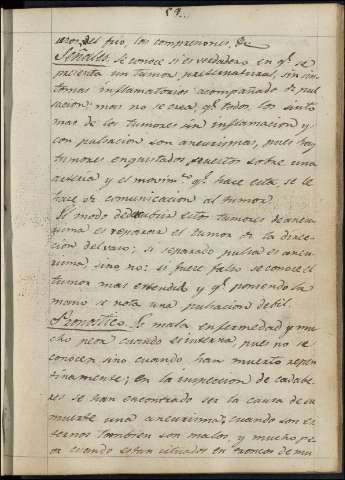 59.
del frio, las compresiones, &c
Señales. Se conoce si es verdadera en q.e se
presenta un tumor preternatural, sin sin-
tomas inflamatorios acompañado de pul
sacion; mas no se crea q.e todos los sinto
mas de los tumores sin inflamacion y
con pulsacion son aneurismas, pues hay
tumores enquistados puestos sobre una
arteria y el movim.to q.e hace esta, se le
hace de comunicacion al tumor.
El modo de descubrir estos tumores de aneu
risma es separar el tumor de la direc-
cion del vaso; si separado pulsa es aneu
risma sino no: si fuere falsa se conoce el
tumor mas estendido y q.e poniendo la
mano se nota una pulsacion debil.
Pronostico. Es mala enfermedad y mu
cho peor cuando es interna, pues no se
conocen sino cuando han muerto repen
tinamente; En la inspeccion de cadabe-
res se han encontrado ser la causa de su
muerte una aneurisma; cuando son es
ternos tambien son malos, y mucho pe
or cuando estan situados en troncos de mu